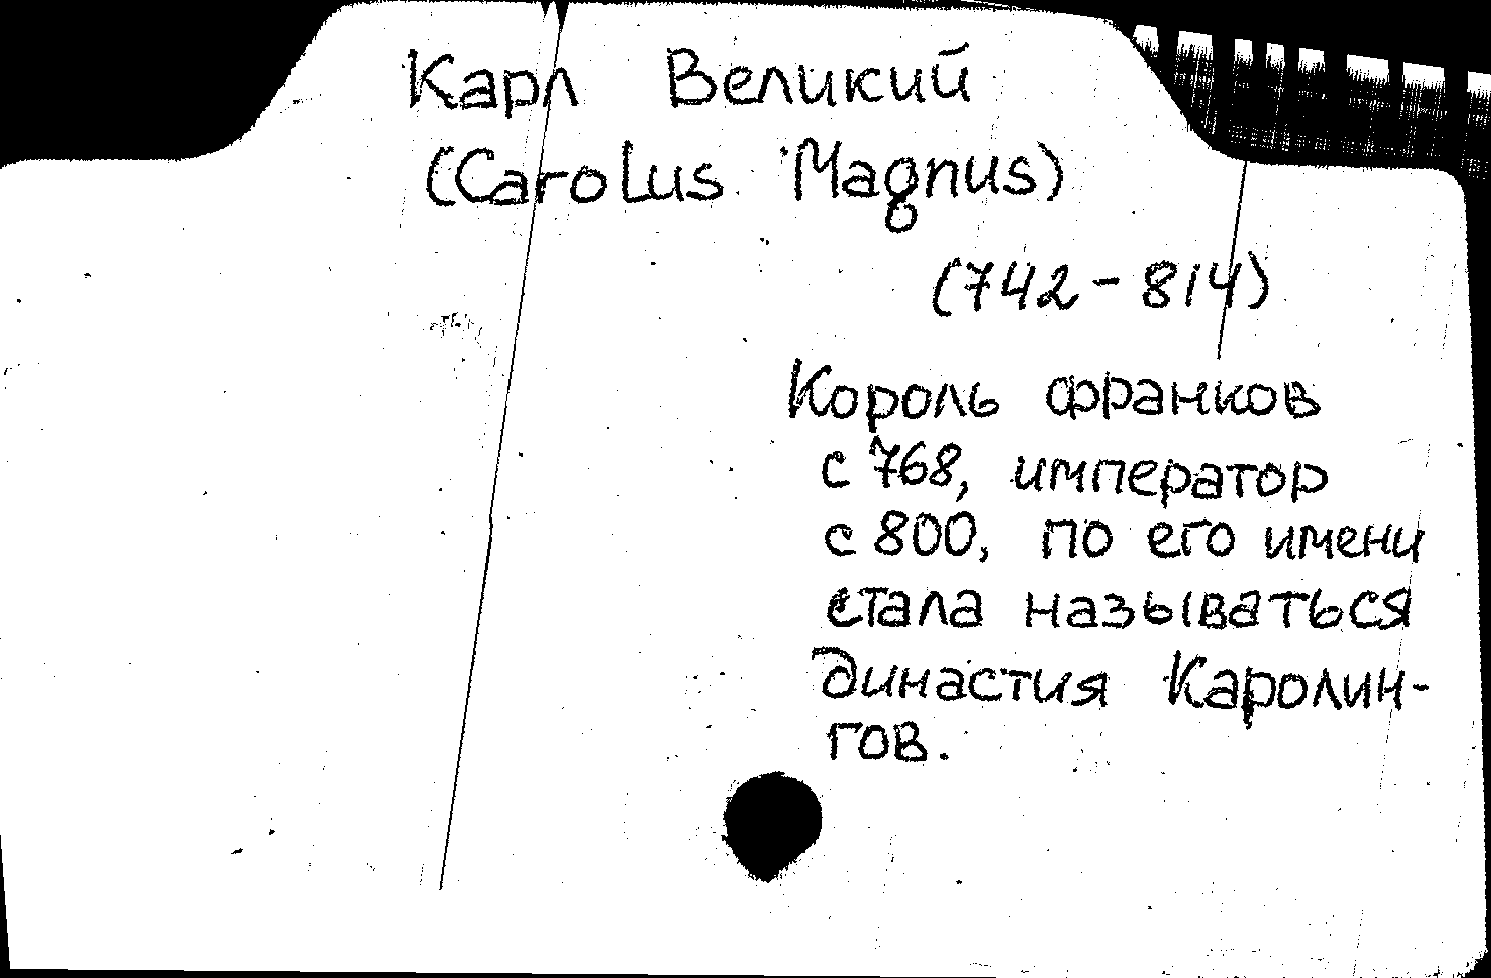 Карл Великий
(Carolus Magnus)
(742 - 814)
Король франков
с 768, император
с 800, по его имени
стала называться
династия Каролин-
гов.